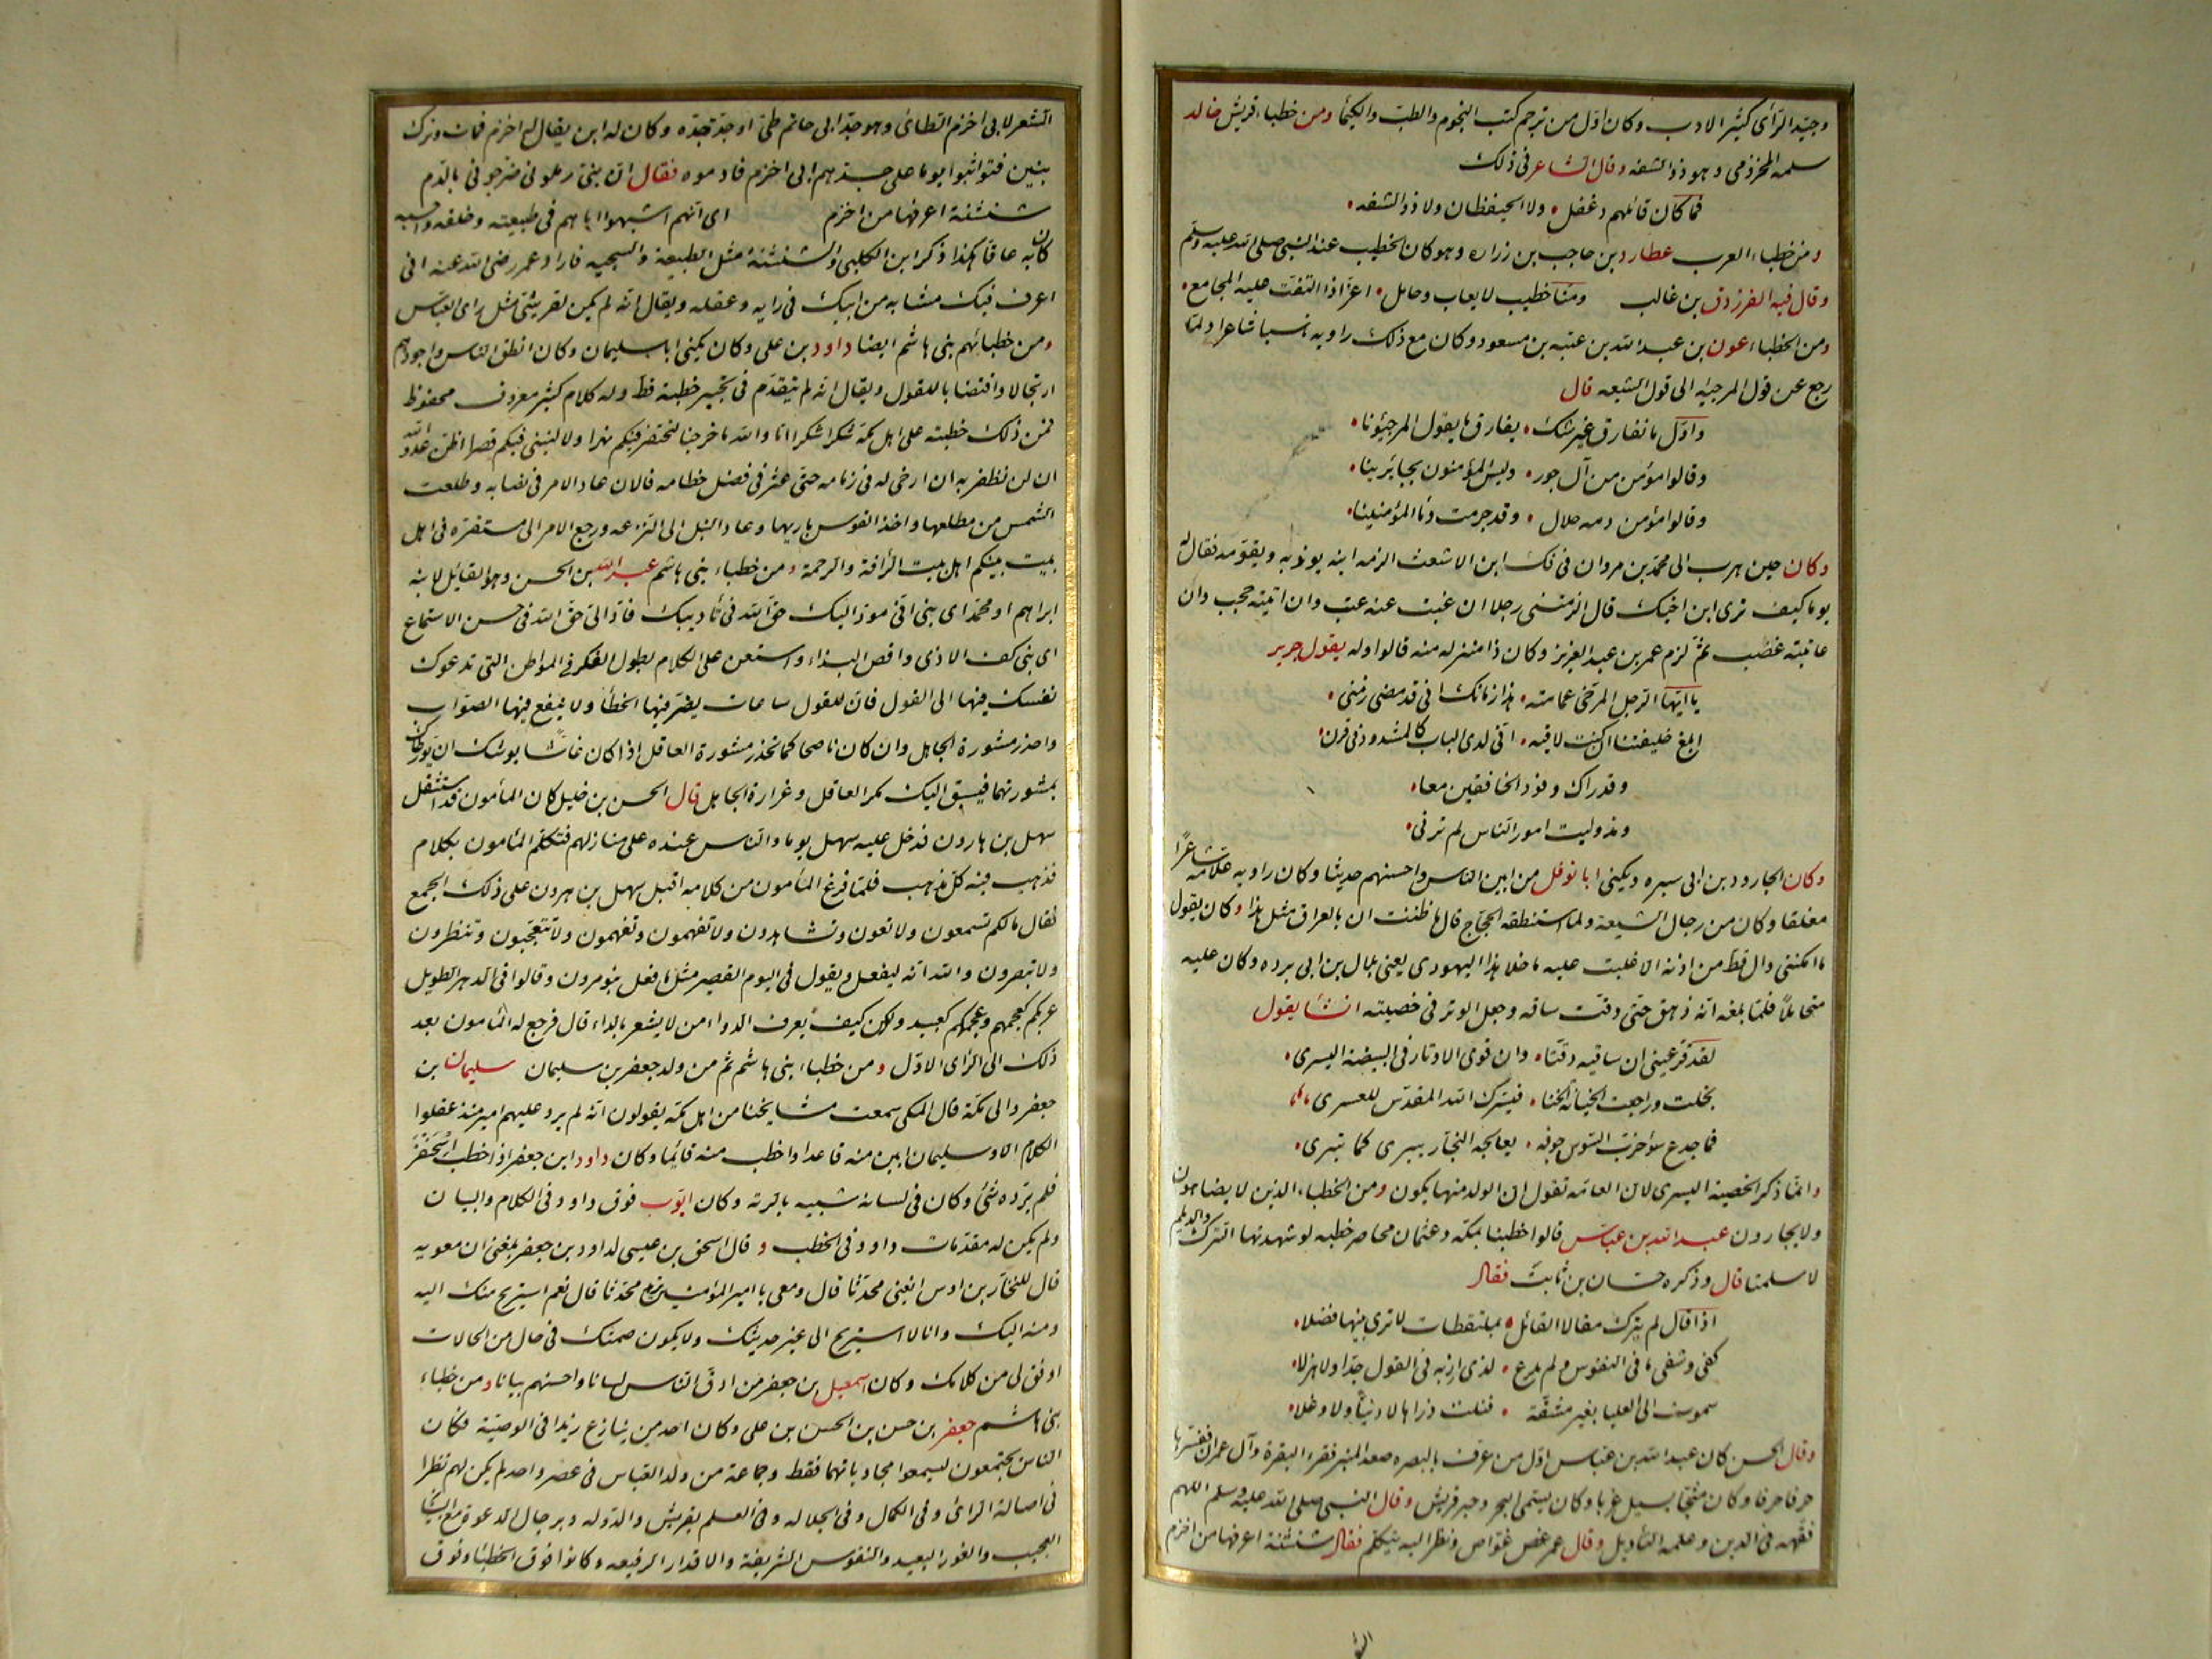 وجيّد الرّأى كثير الادب وكان اوّل من ترجم كتب النجوم والطبّ والكيميا ومن خطباء قريش خالد
سلمه المخزومى وهو ذو الشفه وقال الشاعر فى ذلك
فما كان قائلهم دغفل ولا الحيقظان ولا ذو الشفه
ومن خطباء العرب عطارد بن حاجب بن زراره وهو كان الخطيب عند النبى صلى الله عليه وسلم
وقال فيه الفرزدق بن غالب ومنّا خطيب لا يعاب وحامل اعزّ اذا التفت عليه المجامع
ومن الخطباء عون بن عبد الله بن عتبه بن مسعود وكان مع ذلك راويه ناسبا شاعرا ولمّا
رجع عن قول المرجيه الى قول الشيعه قال
واوّل ما نفارق غير شك يفارق ما يقول المرجيؤنا
وقالوا مؤمن من آل جور وليس المؤمنون بجائرينا
وقالوا مؤمن دمه حلال وقد حرمت دمأ المؤمنينا
وكان حين هرب الى محمّد بن مروان فى فلّ ابن الاشعث الزمه ابنه يؤدبه ويقوّمه فقال له
يوما كيف ترى ابن اخيك قال الزمتنى رجلا ان غبت عنه عتب وان اتيته حجب وان
عاتبته غضب ثمّ لزم عمر بن عبد العزيز وكان ذا منزله منه قالوا وله يقول جرير
يا ايّها الرّجل المرخى عمامته هذا زمانك انى قد مضى زمنى
ابلغ خليفتنا ان كنت لاقيه انّى لدى الباب كالمشدود فى قرن
وقد راك وفود الخافقين معا
ومذ وليت امور النّاس لم ترنى
وكان الجارود بن ابى سبره ويكنى ابا نوفل من ابين الناس واحسنهم حديثا وكان راويه علّامه شاعرًا
مغلقا وكان من رجال الشيعة ولما استنطقه الحجّاج قال ما ظننت ان بالعراق مثل هذا وكان يقول
ما امكننى وال قطّ من اذنه الا غلبت عليه ما خلا هذا اليهودى يعنى بلال بن ابى برده وكان عليه
متحاملًا فلمّا بلغه انّه دهق حتّى دقّت ساقه وجعل الوتر فى خصيته انشأ يقول
لقد قرّ عينى ان ساقيه دقّتا وان قوى الاوتار فى البيضة اليسرى
بخلت وراجعت الخيانة الخنا فيسّرك الله المقدّس للعسرى
فما جدع سؤ خرّب السّوس جوفه يعالجه النجّار يبرى كما تبرى
وانمّا ذكر الخصية اليسرى لان العامّه تقول ان الولد منها يكون ومن الخطباء الذين لا يضاهون
ولا يجارون عبد الله بن عبّاس قالوا خطبنا بمكّه وعثمان محاصر خطبه لو شهدتها الترك والديلم
لاسلمتا قال وذكره حسّان بن ثابت فقال
اذا قال لم يترك مقالا لقائل بملتقطات لا ترى بينها فضلا
كفى وشفى ما فى النفوس ولم يدع لذى اربه فى القول جدّا ولا هزلا
سموت الى العليا بغير مشقّة فنلت ذراها لا دنيّا ولا وغلا
وقال الحسن كان عبد الله بن عبّاس اوّل من عرّف بالبصره صعد المنبر فقرء البقرة وآل عمران ففسّرها
حرفا حرفا وكان مثجّا يسيل غربا وكان يسمّى البحر وحبر قريش وقال النبى صلى الله عليه وسلم اللهم
فقّهه فى الدين وعلمه التأويل وقال عمر غص غوّاص ونظر اليه يتكلم فقال شنشنة اعرفها من اخزم
الشعر لابى اخزم الطائى وهو جدّ ابى حاتم طىّ او جدّ جدّه وكان له ابن يقال له اخزم فمات وترك
بنين فتواثبوا يوما على جدّهم ابى اخزم فادموه فقال انّ بنىّ رملونى ضرّجونى بالدّم
شنشنة اعرفها من اخزم اى انّهم اشبهوا اباهم فى طبيعته وخلقه واحسبه
كان به عاقّا هكذا ذكر ابن الكلبى والشنشنة مثل الطبيعة والسجيه فاراد عمر رضى الله عنه انى
اعرف فيك مشابه من ابيك فى رايه وعقله ويقال انّه لم يكن لقرشىّ مثل راى العبّاس
ومن خطبائهم بنى هاشم ايضا داود بن على وكان يكنى ابا سليمان وكان انطق الناس واجودهم
ارتجالا واقتضابا للقول ويقال انّه لم يتقدّم فى تحبير خطبة قطّ وله كلام كثير معروف محفوظ
فمن ذلك خطبته على اهل مكّة شكرا شكرا اما والله ما خرجنا لنحتفر فيكم نهرا ولا لنبنى فيكم قصرا اظنّ عدوّ الله
ان لن نظفر به ان ارخى له فى زمامه حتى عثر فى فضل خطامه فالان عاد الامر فى نصابه وطلعت
الشمس من مطلعها واخذ القوس باريها وعاد النبل الى النزعه ورجع الامر الى مستقرّه فى اهل
بيت نبيكم اهل بيت الرأفة والرحمة ومن خطباء بنى هاشم عبد الله بن الحسن وهو القائل لابنه
ابراهيم او محمّد اى بنى انّى مؤدّ اليك حقّ الله فى تأديبك فادّ الى حقّ الله فى حسن الاستماع
اى بنى كفّ الاذى وافض البذاء واستعن على الكلام بطول الفكر فى المواطن التى تدعوك
نفسك فيها الى القول فان للقول ساعات يضرّ فيها الخطأ ولا ينفع فيها الصّواب
واحذر مشورة الجاهل وان كان ناصحا كما تحذر مشورة العاقل اذا كان غاشّا يوشك ان يورّطاك
بمشورتهما فيسبق اليك مكر العاقل وغرارة الجاهل قال الحسن بن خليل كان المأمون قد استثقل
سهل بن هارون فدخل عليه سهل يوما والناس عنده على منازلهم فتكلّم المأمون بكلام
فذهب فيه كلّ مذهب فلمّا فرغ المأمون من كلامه اقبل سهل بن هرون على ذلك الجمع
فقال ما لكم تسمعون ولا تعون وتشاهدون ولا تفهمون وتفهمون ولا تتعجّبون وتنظرون
ولا تبصرون والله انّه ليفعل ويقول فى اليوم القصير مثل ما فعل بنو مرون وقالوا فى الدهر الطويل
عربكم كعجمهم وعجمكم كعبيد ولكن كيف يعرف الدواء من لا يشعر بالداء قال فرجع له المأمون بعد
ذلك الى الرّأى الاوّل ومن خطباء بنى هاشم ثم من ولد جعفر بن سليمان سليمان بن
جعفر والى مكّة قال المكى سمعت مشايخنا من اهل مكّه يقولون انّه لم يرد عليهم امير منذ عقلوا
الكلام الا وسليمان ابين منه قاعدا واخطب منه قائما وكان داود ابن جعفر اذا خطب اسحنفر
فلم يردّه شىء وكان فى لسانه شبيه بالرته وكان ايّوب فوق داود فى الكلام والبيان
ولم يكن له مقدّمات داود فى الخطب وقال اسحق بن عيسى لداود بن جعفر بلغنى ان معويه
قال للنخّار بن اوس ابغنى محدّثا قال ومعى يا امير المؤمنين تريد محدّثا قال نعم استريح منك اليه
ومنه اليك وانا لا استريح الى غير حديثك ولا يكون صمتك فى حال من الحالات
اوفق لى من كلامك وكان اسمعيل بن جعفر من ادقّ الناس لسانا واحسنهم بيانا ومن خطباء
بنى هاشم جعفر بن حسن بن الحسن بن على وكان احد من ينازع زيدا فى الوصيّة فكان
الناس يجتمعون ليسمعوا مجاوباتهما فقط وجماعة من ولد العبّاس فى عصر واحد لم يكن لهم نظرا
فى اصالة الرأى وفى الكمال وفى الجلاله وفى العلم بقريش والدّوله وبرجال الدعوة مع البيان
العجيب والغور البعيد والنفوس الشريفة والاقدار الرفيعه وكانوا فوق الخطبا وفوق